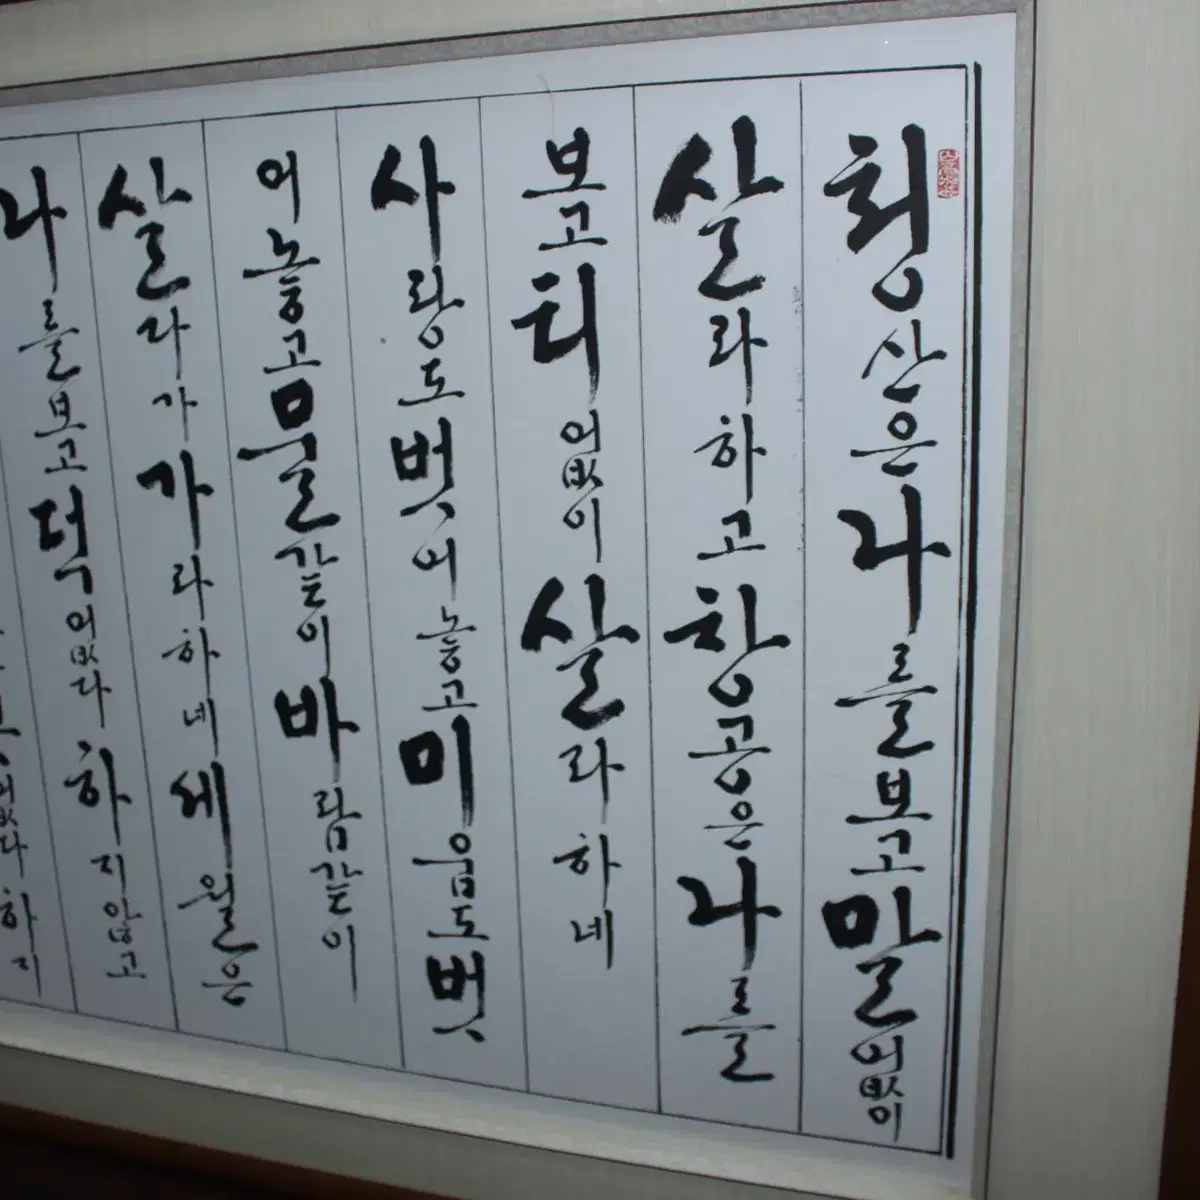 청산은나를보고말없이
살라하고창공은나를
보고티없이살라하네
사랑도벗어놓고미움도벗
어놓고물같이바람같이
살다가가라하네세월은
나를보고덧없다하지않고
없다하지